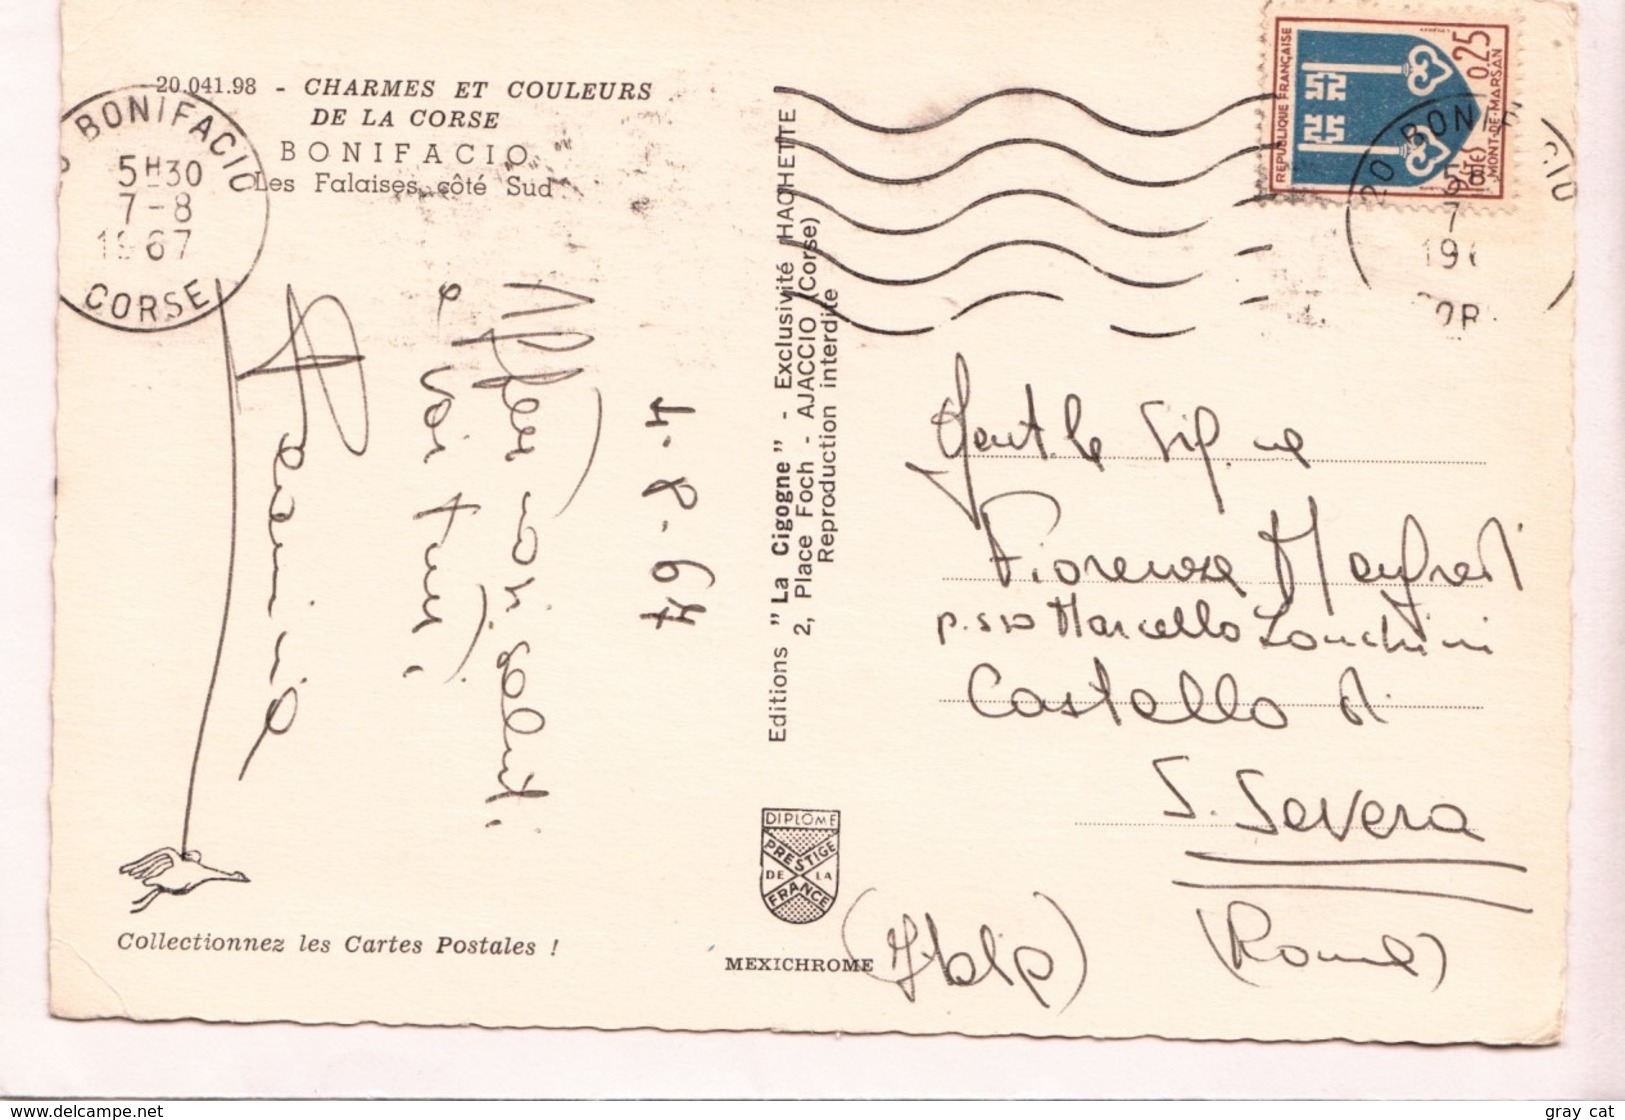 20.041.98 - CHARMES ET COULEURS
DE LA CORSE
BONIFACIO
Les Falaises, côté Sud
BONIFACIO
5H30
7-8
1967
CORSE
4-8-67
a voi tutti.
Collectionnez les Cartes Postales !
Editions "La Cigogne" - Exclusivité HACHETTE
2, Place Foch - AJACCIO (Corse)
Reproduction interdite
DIPLOME
PRESTIGE
DE LA
FRANCE
MEXICHROME
REPUBLIQUE FRANÇAISE
0.25
MONT-DE-MARSAN
20 BONIF CIO
7
196
OR
Gent.le Sig.na
Fiorenza Manfredi
p.sso Marcello Zonchini
Castello di
S. Severa
(Roma)
(Italia)
gray cat